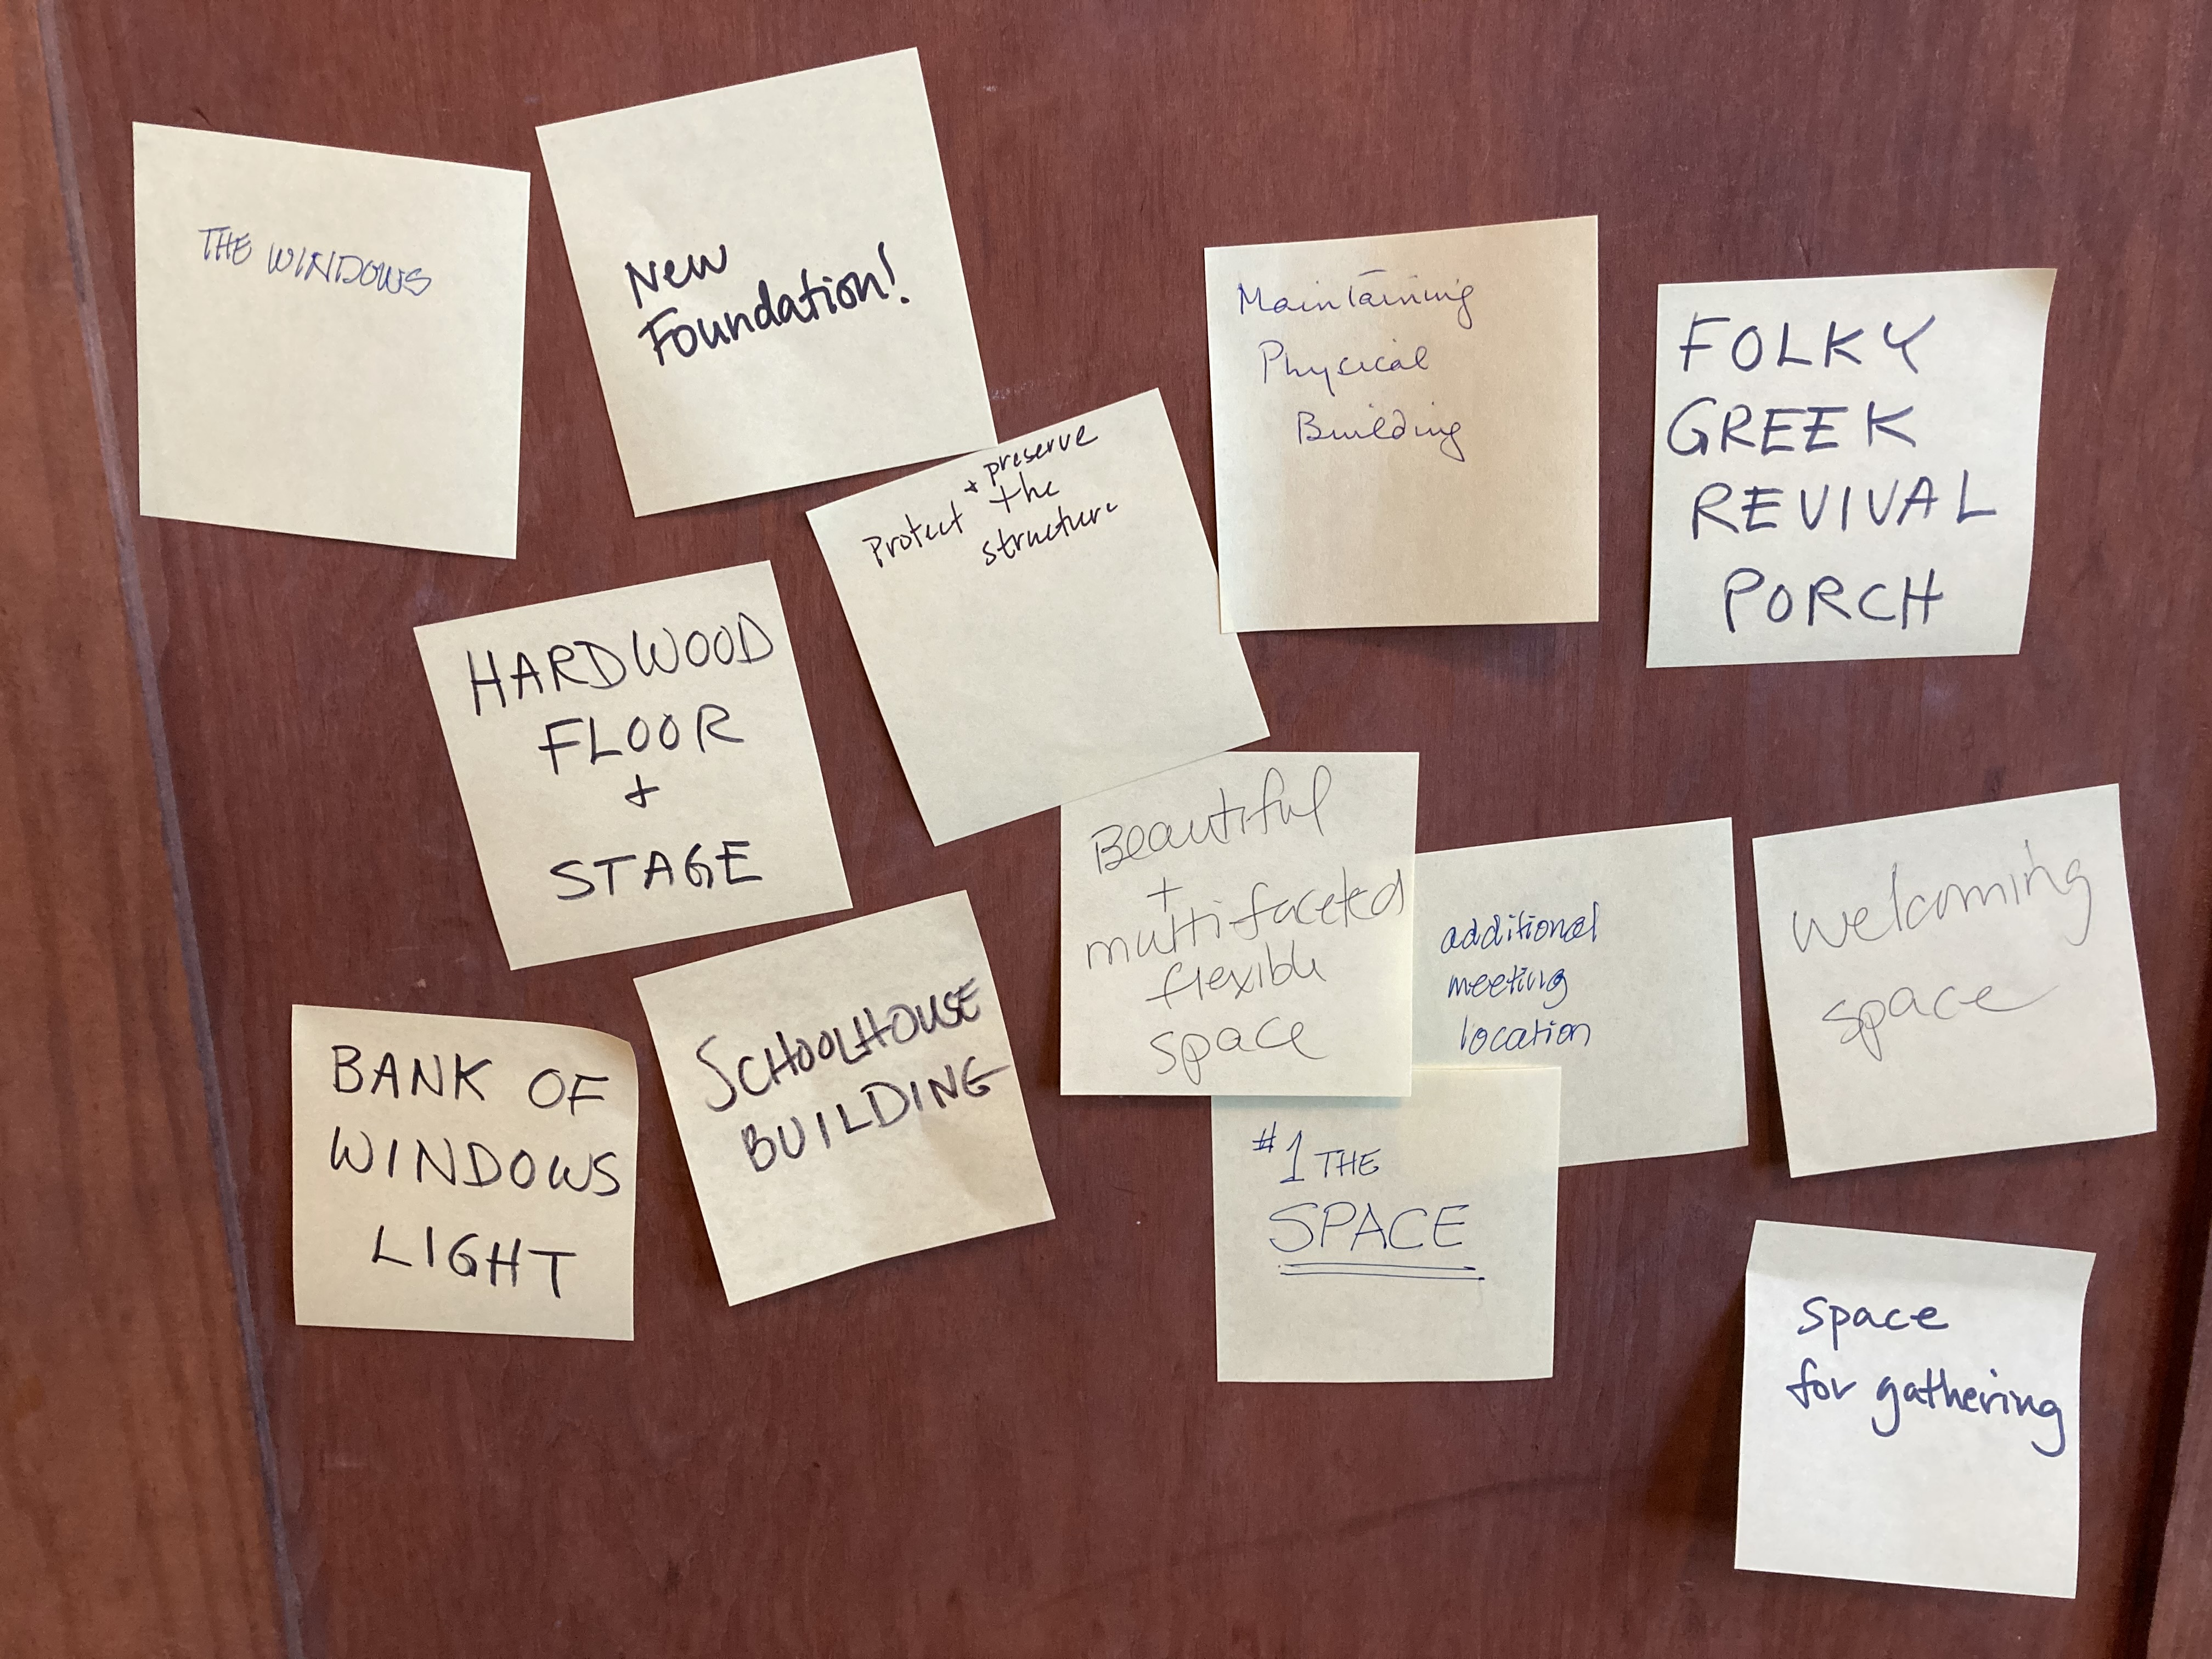 THE WINDOWS
New
Foundation!
Protect + preserve
the
structure
Maintaining
Physical
Building
FOLKY
GREEK
REVIVAL
PORCH
HARDWOOD
FLOOR
+
STAGE
Beautiful
+
multifaceted
flexible
space
additional
meeting
location
welcoming
space
BANK OF
WINDOWS
LIGHT
SCHOOLHOUSE
BUILDING
#1 THE
SPACE
space
for gathering